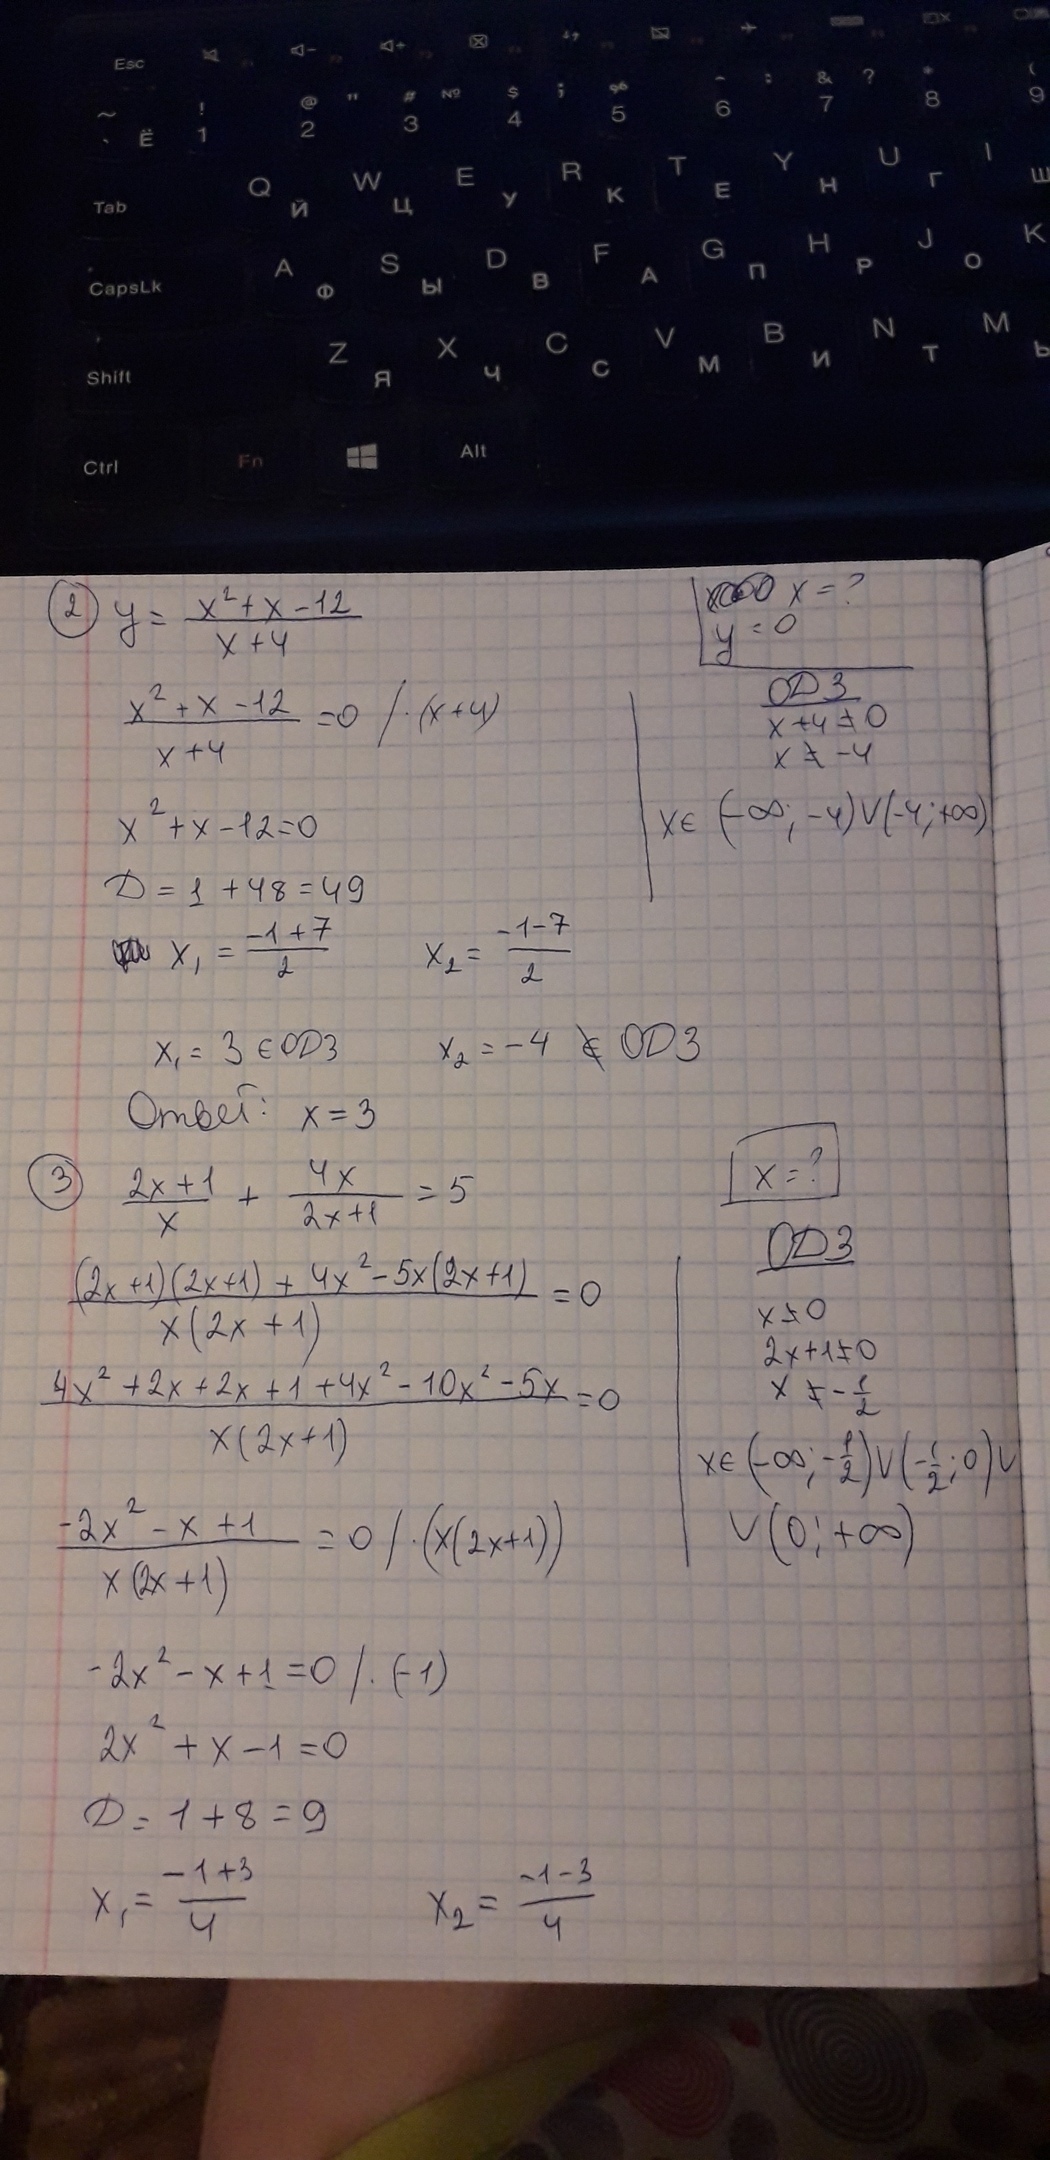 Esc
~ ` Ё ! 1 @ " 2 # № 3 $ ; 4 % 5 ^ : 6 & ? 7 * 8 ( 9
Tab Q Й W Ц E У R К T Е Y Н U Г I Ш
CapsLk A Ф S Ы D В F А G П H Р J О K
Shift Z Я X Ч C С V М B И N Т M Ь
Ctrl Fn Alt
② y = (x² + x - 12)/(x + 4)
x = ?
y = 0
(x² + x - 12)/(x + 4) = 0 / · (x + 4)
ОДЗ
x + 4 ≠ 0
x ≠ -4
x ∈ (-∞; -4) ∨ (-4; +∞)
x² + x - 12 = 0
D = 1 + 48 = 49
x₁ = (-1 + 7)/2 x₂ = (-1 - 7)/2
x₁ = 3 ∈ ОДЗ x₂ = -4 ∉ ОДЗ
Ответ: x = 3
③ (2x + 1)/x + 4x/(2x + 1) = 5
x = ?
((2x + 1)(2x + 1) + 4x² - 5x(2x + 1))/(x(2x + 1)) = 0
ОДЗ
x ≠ 0
2x + 1 ≠ 0
x ≠ -1/2
x ∈ (-∞; -1/2) ∨ (-1/2; 0) ∨
∨ (0; +∞)
(4x² + 2x + 2x + 1 + 4x² - 10x² - 5x)/(x(2x + 1)) = 0
(-2x² - x + 1)/(x(2x + 1)) = 0 / · (x(2x + 1))
-2x² - x + 1 = 0 / · (-1)
2x² + x - 1 = 0
D = 1 + 8 = 9
x₁ = (-1 + 3)/4 x₂ = (-1 - 3)/4